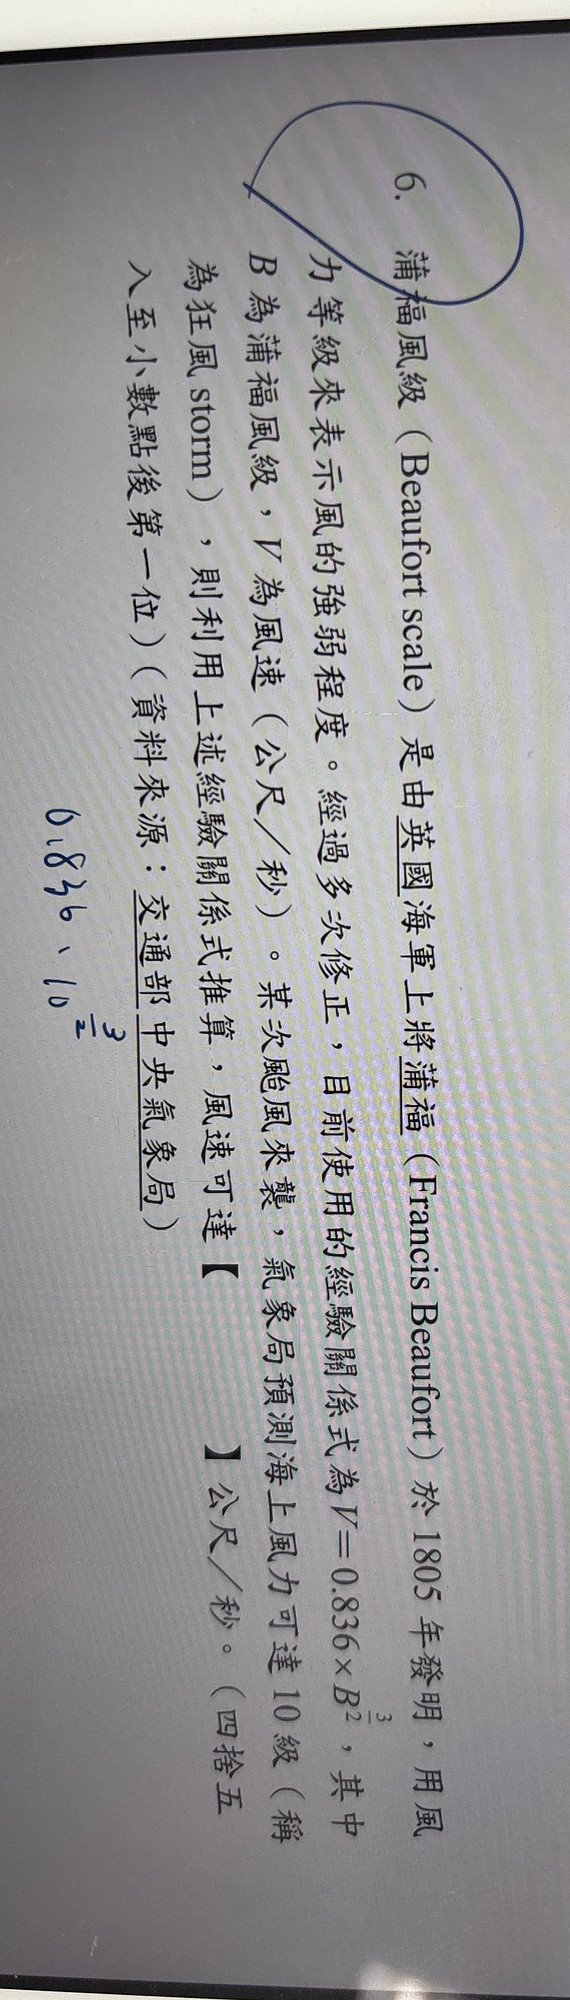 6. 蒲福風級（Beaufort scale）是由英國海軍上將蒲福（Francis Beaufort）於 1805 年發明，用風
力等級來表示風的強弱程度。經過多次修正，目前使用的經驗關係式為 V＝0.836×B^(3/2)，其中
B 為蒲福風級，V 為風速（公尺／秒）。某次颱風來襲，氣象局預測海上風力可達 10 級（稱
為狂風 storm），則利用上述經驗關係式推算，風速可達【　　　】公尺／秒。（四捨五
入至小數點後第一位）（資料來源：交通部中央氣象局）
0.836、10^(3/2)